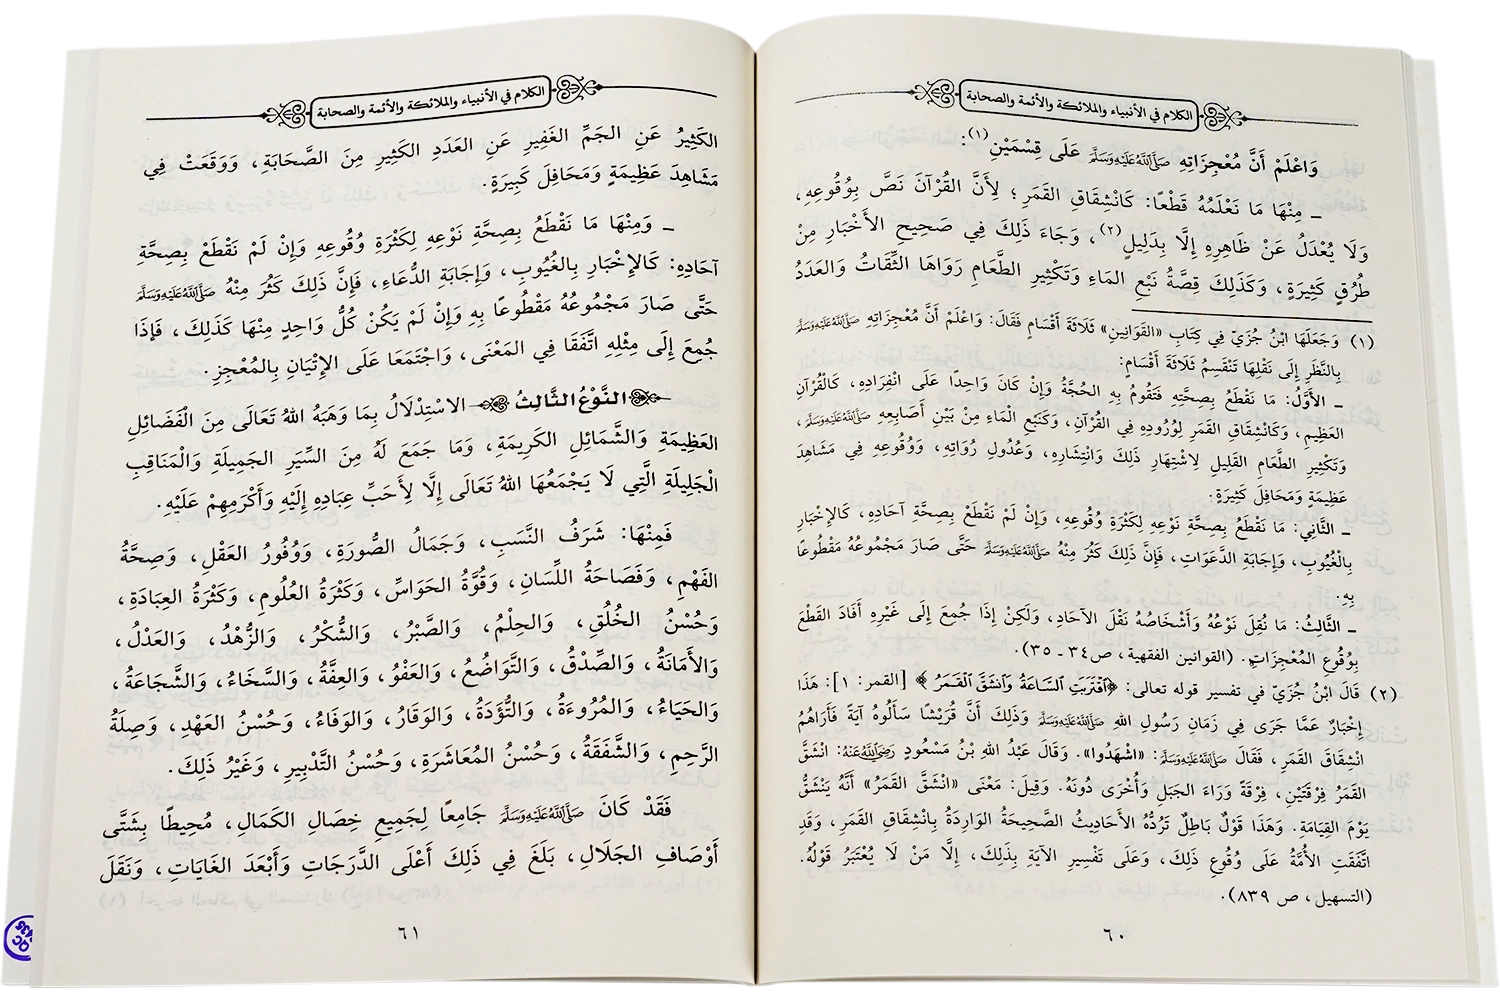 الكلام في الأنبياء والملائكة والأئمة والصحابة
وَاعْلَمْ أَنَّ مُعْجِزَاتِهِ ﷺ عَلَى قِسْمَيْنِ(١):
ـ مِنْهَا مَا نَعْلَمُهُ قَطْعًا: كَانْشِقَاقِ القَمَرِ؛ لِأَنَّ القُرْآنَ نَصَّ بِوُقُوعِهِ،
وَلَا يُعْدَلُ عَنْ ظَاهِرِهِ إِلَّا بِدَلِيلٍ(٢)، وَجَاءَ ذَلِكَ فِي صَحِيحِ الأَخْبَارِ مِنْ
طُرُقٍ كَثِيرَةٍ، وَكَذَلِكَ قِصَّةُ نَبْعِ المَاءِ وَتَكْثِيرِ الطَّعَامِ رَوَاهَا الثِّقَاتُ وَالعَدَدُ
(١) وَجَعَلَهَا ابْنُ جُزَيّ فِي كِتَابِ «القَوَانِينِ» ثَلَاثَةَ أَقْسَامٍ فَقَالَ: وَاعْلَمْ أَنَّ مُعْجِزَاتِهِ ﷺ
بِالنَّظَرِ إِلَى نَقْلِهَا تَنْقَسِمُ ثَلَاثَةَ أَقْسَامٍ:
ـ الأَوَّلُ: مَا نَقْطَعُ بِصِحَّتِهِ فَتَقُومُ بِهِ الحُجَّةُ وَإِنْ كَانَ وَاحِدًا عَلَى انْفِرَادِهِ، كَالْقُرْآنِ
العَظِيمِ، وَكَانْشِقَاقِ القَمَرِ لِوُرُودِهِ فِي القُرْآنِ، وَكَنَبْعِ الْمَاءِ مِنْ بَيْنِ أَصَابِعِهِ ﷺ،
وَتَكْثِيرِ الطَّعَامِ القَلِيلِ لِاشْتِهَارِ ذَلِكَ وَانْتِشَارِهِ، وَعُدُولِ رُوَاتِهِ، وَوُقُوعِهِ فِي مَشَاهِدَ
عَظِيمَةٍ وَمَحَافِلَ كَثِيرَةٍ.
ـ الثَّانِي: مَا نَقْطَعُ بِصِحَّةِ نَوْعِهِ لِكَثْرَةِ وُقُوعِهِ، وَإِنْ لَمْ نَقْطَعْ بِصِحَّةِ آحَادِهِ، كَالإِخْبَارِ
بِالْغُيُوبِ، وَإِجَابَةِ الدَّعَوَاتِ، فَإِنَّ ذَلِكَ كَثُرَ مِنْهُ ﷺ حَتَّى صَارَ مَجْمُوعُهُ مَقْطُوعًا
بِهِ.
ـ الثَّالِثُ: مَا نُقِلَ نَوْعُهُ وَأَشْخَاصُهُ نَقْلَ الآحَادِ، وَلَكِنْ إِذَا جُمِعَ إِلَى غَيْرِهِ أَفَادَ القَطْعَ
بِوُقُوعِ المُعْجِزَاتِ. (القوانين الفقهية، ص٣٤ ـ ٣٥).
(٢) قَالَ ابْنُ جُزَيّ في تفسير قوله تعالى: ﴿اقْتَرَبَتِ السَّاعَةُ وَانْشَقَّ الْقَمَرُ﴾ [القمر: ١]: هَذَا
إِخْبَارٌ عَمَّا جَرَى فِي زَمَانِ رَسُولِ اللهِ ﷺ وَذَلِكَ أَنَّ قُرَيْشًا سَأَلُوهُ آيَةً فَأَرَاهُمُ
انْشِقَاقَ القَمَرِ، فَقَالَ ﷺ: «اشْهَدُوا». وَقَالَ عَبْدُ اللهِ بْنُ مَسْعُودٍ رَضِيَ اللهُ عَنْهُ: انْشَقَّ
القَمَرُ فِرْقَتَيْنِ، فِرْقَةً وَرَاءَ الجَبَلِ وَأُخْرَى دُونَهُ. وَقِيلَ: مَعْنَى «انْشَقَّ القَمَرُ» أَنَّهُ يَنْشَقُّ
يَوْمَ القِيَامَةِ. وَهَذَا قَوْلٌ بَاطِلٌ تَرُدُّهُ الأَحَادِيثُ الصَّحِيحَةُ الوَارِدَةُ بِانْشِقَاقِ القَمَرِ، وَقَدِ
اتَّفَقَتِ الأُمَّةُ عَلَى وُقُوعِ ذَلِكَ، وَعَلَى تَفْسِيرِ الآيَةِ بِذَلِكَ، إِلَّا مَنْ لَا يُعْتَبَرُ قَوْلُهُ.
(التسهيل، ص ٨٣٩).
٦٠
الكلام في الأنبياء والملائكة والأئمة والصحابة
الكَثِيرُ عَنِ الجَمِّ الغَفِيرِ عَنِ العَدَدِ الكَثِيرِ مِنَ الصَّحَابَةِ، وَوَقَعَتْ فِي
مَشَاهِدَ عَظِيمَةٍ وَمَحَافِلَ كَبِيرَةٍ.
ـ وَمِنْهَا مَا نَقْطَعُ بِصِحَّةِ نَوْعِهِ لِكَثْرَةِ وُقُوعِهِ وَإِنْ لَمْ نَقْطَعْ بِصِحَّةِ
آحَادِهِ: كَالإِخْبَارِ بِالْغُيُوبِ، وَإِجَابَةِ الدُّعَاءِ، فَإِنَّ ذَلِكَ كَثُرَ مِنْهُ ﷺ
حَتَّى صَارَ مَجْمُوعُهُ مَقْطُوعًا بِهِ وَإِنْ لَمْ يَكُنْ كُلُّ وَاحِدٍ مِنْهَا كَذَلِكَ، فَإِذَا
جُمِعَ إِلَى مِثْلِهِ اتَّفَقَا فِي المَعْنَى، وَاجْتَمَعَا عَلَى الإِتْيَانِ بِالمُعْجِزِ.
النَّوْعُ الثَّالِثُ الاسْتِدْلَالُ بِمَا وَهَبَهُ اللهُ تَعَالَى مِنَ الْفَضَائِلِ
العَظِيمَةِ وَالشَّمَائِلِ الكَرِيمَةِ، وَمَا جَمَعَ لَهُ مِنَ السِّيَرِ الجَمِيلَةِ وَالْمَنَاقِبِ
الْجَلِيلَةِ الَّتِي لَا يَجْمَعُهَا اللهُ تَعَالَى إِلَّا لِأَحَبِّ عِبَادِهِ إِلَيْهِ وَأَكْرَمِهِمْ عَلَيْهِ.
فَمِنْهَا: شَرَفُ النَّسَبِ، وَجَمَالُ الصُّورَةِ، وَوُفُورُ العَقْلِ، وَصِحَّةُ
الفَهْمِ، وَفَصَاحَةُ اللِّسَانِ، وَقُوَّةُ الحَوَاسِّ، وَكَثْرَةُ العُلُومِ، وَكَثْرَةُ العِبَادَةِ،
وَحُسْنُ الخُلُقِ، وَالحِلْمُ، وَالصَّبْرُ، وَالشُّكْرُ، وَالزُّهْدُ، وَالعَدْلُ،
وَالأَمَانَةُ، وَالصِّدْقُ، وَالتَّوَاضُعُ، وَالعَفْوُ، وَالعِفَّةُ، وَالسَّخَاءُ، وَالشَّجَاعَةُ،
وَالحَيَاءُ، وَالمُرُوءَةُ، وَالتُّؤَدَةُ، وَالوَقَارُ، وَالوَفَاءُ، وَحُسْنُ العَهْدِ، وَصِلَةُ
الرَّحِمِ، وَالشَّفَقَةُ، وَحُسْنُ المُعَاشَرَةِ، وَحُسْنُ التَّدْبِيرِ، وَغَيْرُ ذَلِكَ.
فَقَدْ كَانَ ﷺ جَامِعًا لِجَمِيعِ خِصَالِ الكَمَالِ، مُحِيطًا بِشَتَّى
أَوْصَافِ الجَلَالِ، بَلَغَ فِي ذَلِكَ أَعْلَى الدَّرَجَاتِ وَأَبْعَدَ الغَايَاتِ، وَنَقَلَ
٦١